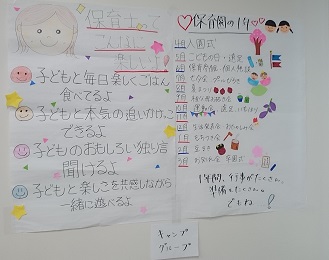 保育士って
こんなに
楽しいよ!
子どもと毎日楽しくごはん
食べてるよ
子どもと本気の追いかけっこ
できるよ
子どものおもしろい独り言
聞けるよ
子どもと楽しさを共感しながら
一緒に遊べるよ
♡保育園の1年♡
4月 入園式
5月 こどもの日・遠足
6月 保育参観・個人懇談
7月 七夕会 プールびらき
8月 夏まつり
9月
10月 運動会 遠足 いもほり
11月
12月 生活発表会 おたのしみ会
1月 もちつき会
2月 豆まき
3月 お別れ会 卒園式
1年間、行事がたくさん。
準備もたくさん。
でもね!
キャンプ
グループ